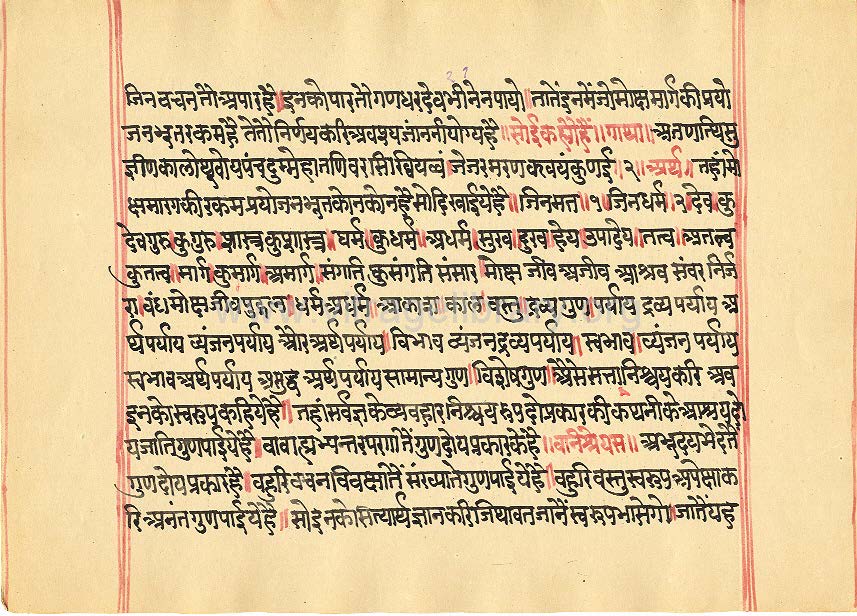 जिनवचनतौ अपारहै॥ इनकोपारतौगणधरदेवभीनेनपायो॥ तातेंइनमेंजोमोक्षमार्गकीप्रयो
जनभूतरकमहै तेतौनिर्णयकरिअवश्यजांननीयोग्यहै॥ सोईकहीहै॥ गाथा॥
क्षमारगकीरकमप्रयोजनभूतकोनकोनहै सोदिखाईयेहै॥ जिनमत॥१॥ जिनधर्म॥२॥ देव कु
देवगुरु कुगुरु शास्त्र कुशास्त्र॥ धर्म॥ कुधर्म॥ अधर्म सुख दुख हेय उपादेय॥ तत्व॥ अतत्व
कुतत्व॥ मार्ग॥ कुमार्ग॥ अमार्ग॥ संगति कुसंगति संसार मोक्ष जीव अजीव आश्रव संवर निर्ज
रा बंध मोक्ष जीव पुद्गल॥ धर्म अधर्म॥ आकाश काल वस्तु॥ द्रव्य गुण पर्याय द्रव्य पर्याय अ
र्थ पर्याय व्यंजन पर्याय औरअर्थपर्याय॥ विभाव व्यंजनद्रव्यपर्याय॥ स्वभाव॥ व्यंजन पर्याय
स्वभावअर्थपर्याय अशुद्ध अर्थपर्याय सामान्यगुण॥ विशेषगुण॥ निश्चयकरि अव
इनकोस्वरूपकहियेहै॥ तहांसर्वज्ञकेव्यवहारनिश्चयरूपदोप्रकारकीकथनीकेआश्रयदो
यजातिगुणपाईयेहै॥
गुणदोयप्रकारहै॥ बहुरिवचनविवक्षातें संख्यातेगुणपाईयेहै॥ बहुरिवस्तुस्वरूपअपेक्षाक
रिअनंतगुणपाईयेहै॥ सोइनकोसत्यार्थज्ञानकरिजथावतजानेंस्वरूपभासेगो॥ जातेंयह